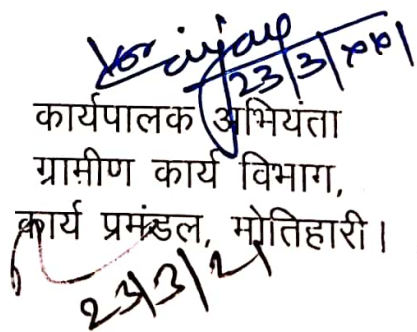 23/3/
कार्यपालक अभियंता
ग्रामीण कार्य विभाग,
कार्य प्रमंडल, मोतिहारी।
23/3/21